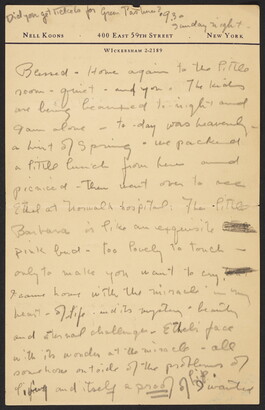 Did you get tickets for Green Pastures? 930
Sunday night -
NELL KOONS 400 EAST 59TH STREET NEW YORK
WICKERSHAM 2-2189
Blessed - Home again to the little
room - quiet - and you. The kiddies
are being to night and
I am alone - to-day was heavenly -
a hint of Spring - we packed
a little lunch from here and
picniced - then went over to see
Ethel at Normal's hospital. The little
Barbara is like an exquisite
pink bud - too lovely to touch -
only to make you want to cry.
I came home with the miracle in my
heart - of life - and its mystery - beauty
and eternal challenge - Ethel's face
with its wonder at the miracle - all
somehow outside of the problems of
living and itself a proof of life. I wanted